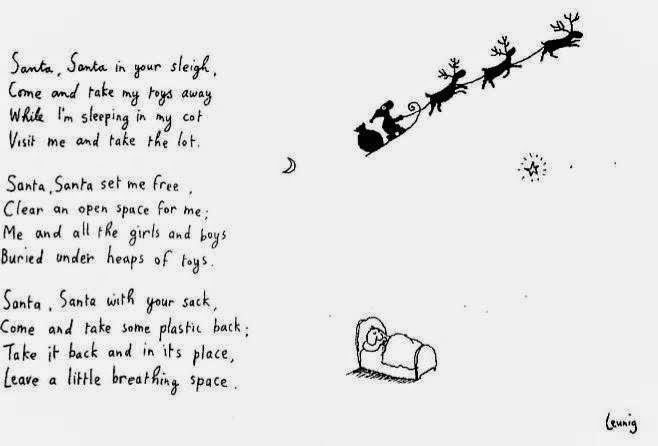 Santa, Santa in your sleigh,
Come and take my toys away
While I'm sleeping in my cot
Visit me and take the lot.
Santa, Santa set me free,
Clear an open space for me;
Me and all the girls and boys
Buried under heaps of toys.
Santa, Santa with your sack,
Come and take some plastic back;
Take it back and in its place,
Leave a little breathing space.
Leunig